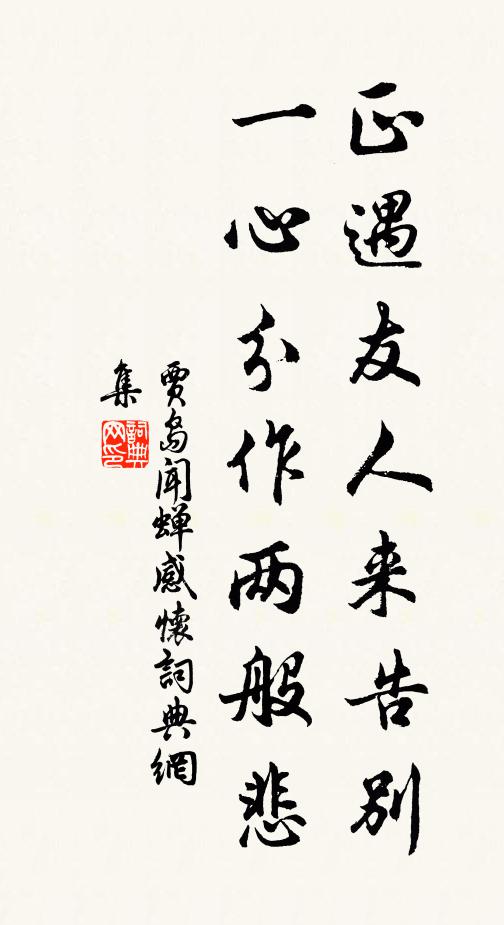 正遇友人来告别
一心分作两般悲
贾岛闻蝉感懷詞典網
集
詞典网印